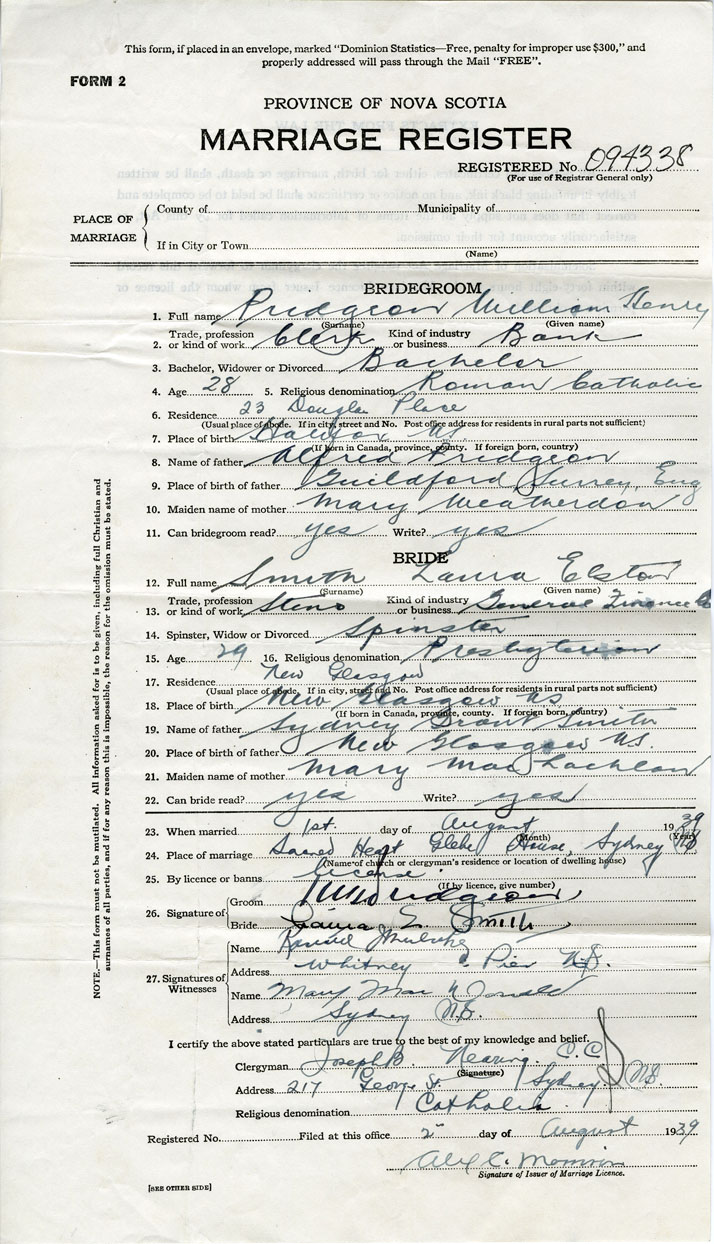 This form, if placed in an envelope, marked "Dominion Statistics—Free, penalty for improper use $300," and
properly addressed will pass through the Mail "FREE".
FORM 2
PROVINCE OF NOVA SCOTIA
MARRIAGE REGISTER
REGISTERED No. 094338
(For use of Registrar General only)
PLACE OF MARRIAGE
County of Municipality of
If in City or Town
(Name)
BRIDEGROOM
1. Full name Pridgeon William Henry
(Surname) (Given name)
2. Trade, profession or kind of work Clerk Kind of industry or business Bank
3. Bachelor, Widower or Divorced Bachelor
4. Age 28 5. Religious denomination Roman Catholic
6. Residence 23 Douglas Place
(Usual place of abode. If in city, street and No. Post office address for residents in rural parts not sufficient)
7. Place of birth Halifax
(If born in Canada, province, county. If foreign born, country)
8. Name of father Alfred Pridgeon
9. Place of birth of father Guildford Surrey, Eng
10. Maiden name of mother Mary Weatherdon
11. Can bridegroom read? yes Write? yes
BRIDE
12. Full name Smith Laura Elston
(Surname) (Given name)
13. Trade, profession or kind of work Steno Kind of industry or business General Finance Co
14. Spinster, Widow or Divorced Spinster
15. Age 29 16. Religious denomination Presbyterian
17. Residence New Glasgow
(Usual place of abode. If in city, street and No. Post office address for residents in rural parts not sufficient)
18. Place of birth New Glasgow NS
(If born in Canada, province, county. If foreign born, country)
19. Name of father Sydney Grant Smith
20. Place of birth of father New Glasgow NS.
21. Maiden name of mother Mary MacLachlan
22. Can bride read? yes Write? yes
23. When married 1st. day of August 1939
(Month) (Year)
24. Place of marriage Sacred Heart Glebe House, Sydney NS
(Name of church or clergyman's residence or location of dwelling house)
25. By licence or banns license
(If by licence, give number)
26. Signature of
Groom Pridgeon
Bride Laura E. Smith
27. Signatures of Witnesses
Name
Address Whitney Pier N.S.
Name Mary MacDonald
Address Sydney N.S.
I certify the above stated particulars are true to the best of my knowledge and belief.
Clergyman Joseph B. Nearing. C.C.
(Signature)
Address 217 George St. Sydney N.S.
Religious denomination Catholic
Registered No. Filed at this office 2 day of August 1939
Alex C.
Signature of Issuer of Marriage Licence.
[SEE OTHER SIDE]
NOTE.—This form must not be mutilated. All information asked for is to be given, including full Christian and
surnames of all parties, and if for any reason this is impossible, the reason for the omission must be stated.